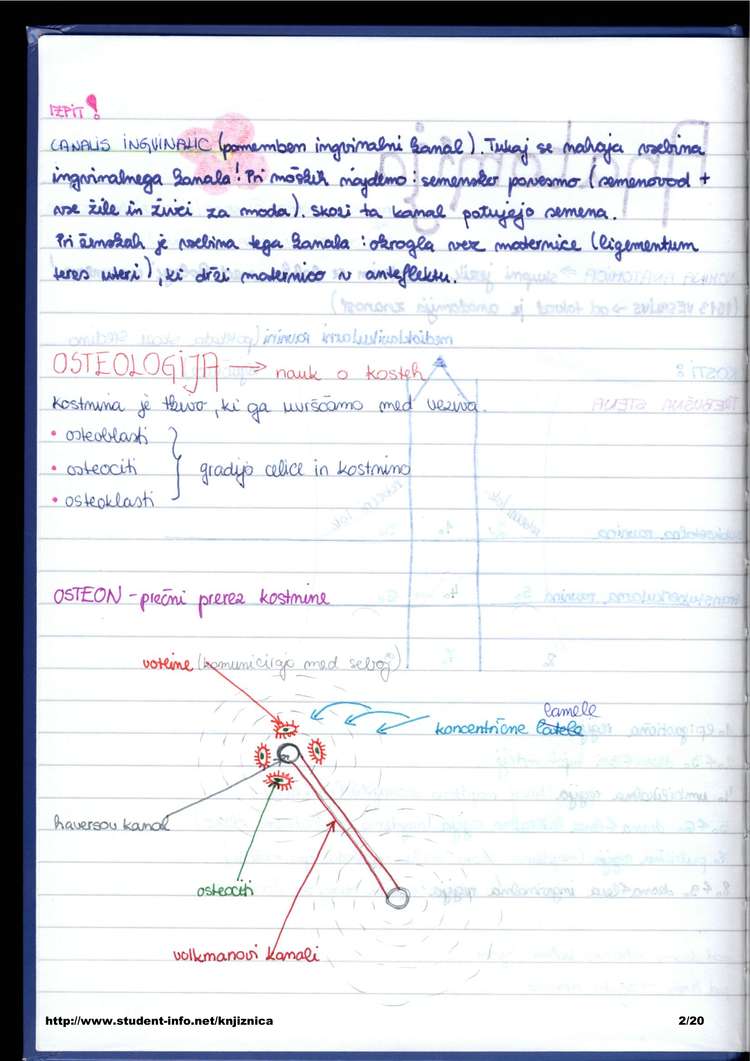 IZPIT!
CANALIS INGVINALIC (pomemben ingvinalni kanal). Tukaj se nahaja vsebina
ingvinalnega kanala! Pri moških najdemo: semensko povesmo (semenovod +
vse žile in živci za moda). Skozi ta kanal potujejo semena.
Pri ženskah je vsebina tega kanala: okrogla vez maternice (ligementum
teres uteri), ki drži maternico v antefleksu.
OSTEOLOGIJA → nauk o kosteh
Kostnina je tkivo, ki ga uvrščamo med veziva.
• osteoblasti
• osteociti } gradijo celice in kostnino
• osteoklasti
OSTEON - prečni prerez kostnine
votline (komunicirajo med seboj)
lamele
koncentrične
haversov kanal
osteociti
volkmanovi kanali
http://www.student-info.net/knjiznica
2/20